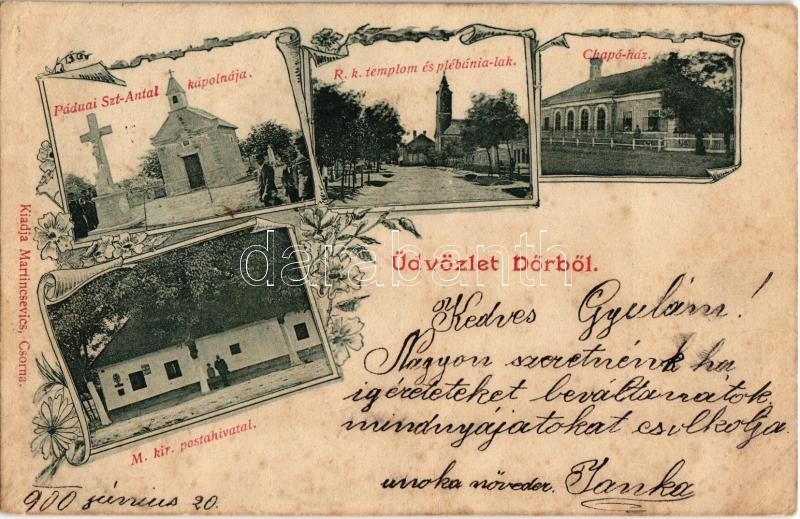 Páduai Szt-Antal kápolnája.
R. k. templom és plébánia-lak.
Chapó-ház.
Kiadja Martincsevics, Csorna.
darabanth
Üdvözlet Dőrből.
Kedves Gyulám!
Nagyon szeretnénk ha
igéreteteket beváltanátok
mindnyájatokat csolkolja
unoka növeder. Janka
M. kir. postahivatal.
900 június 20.